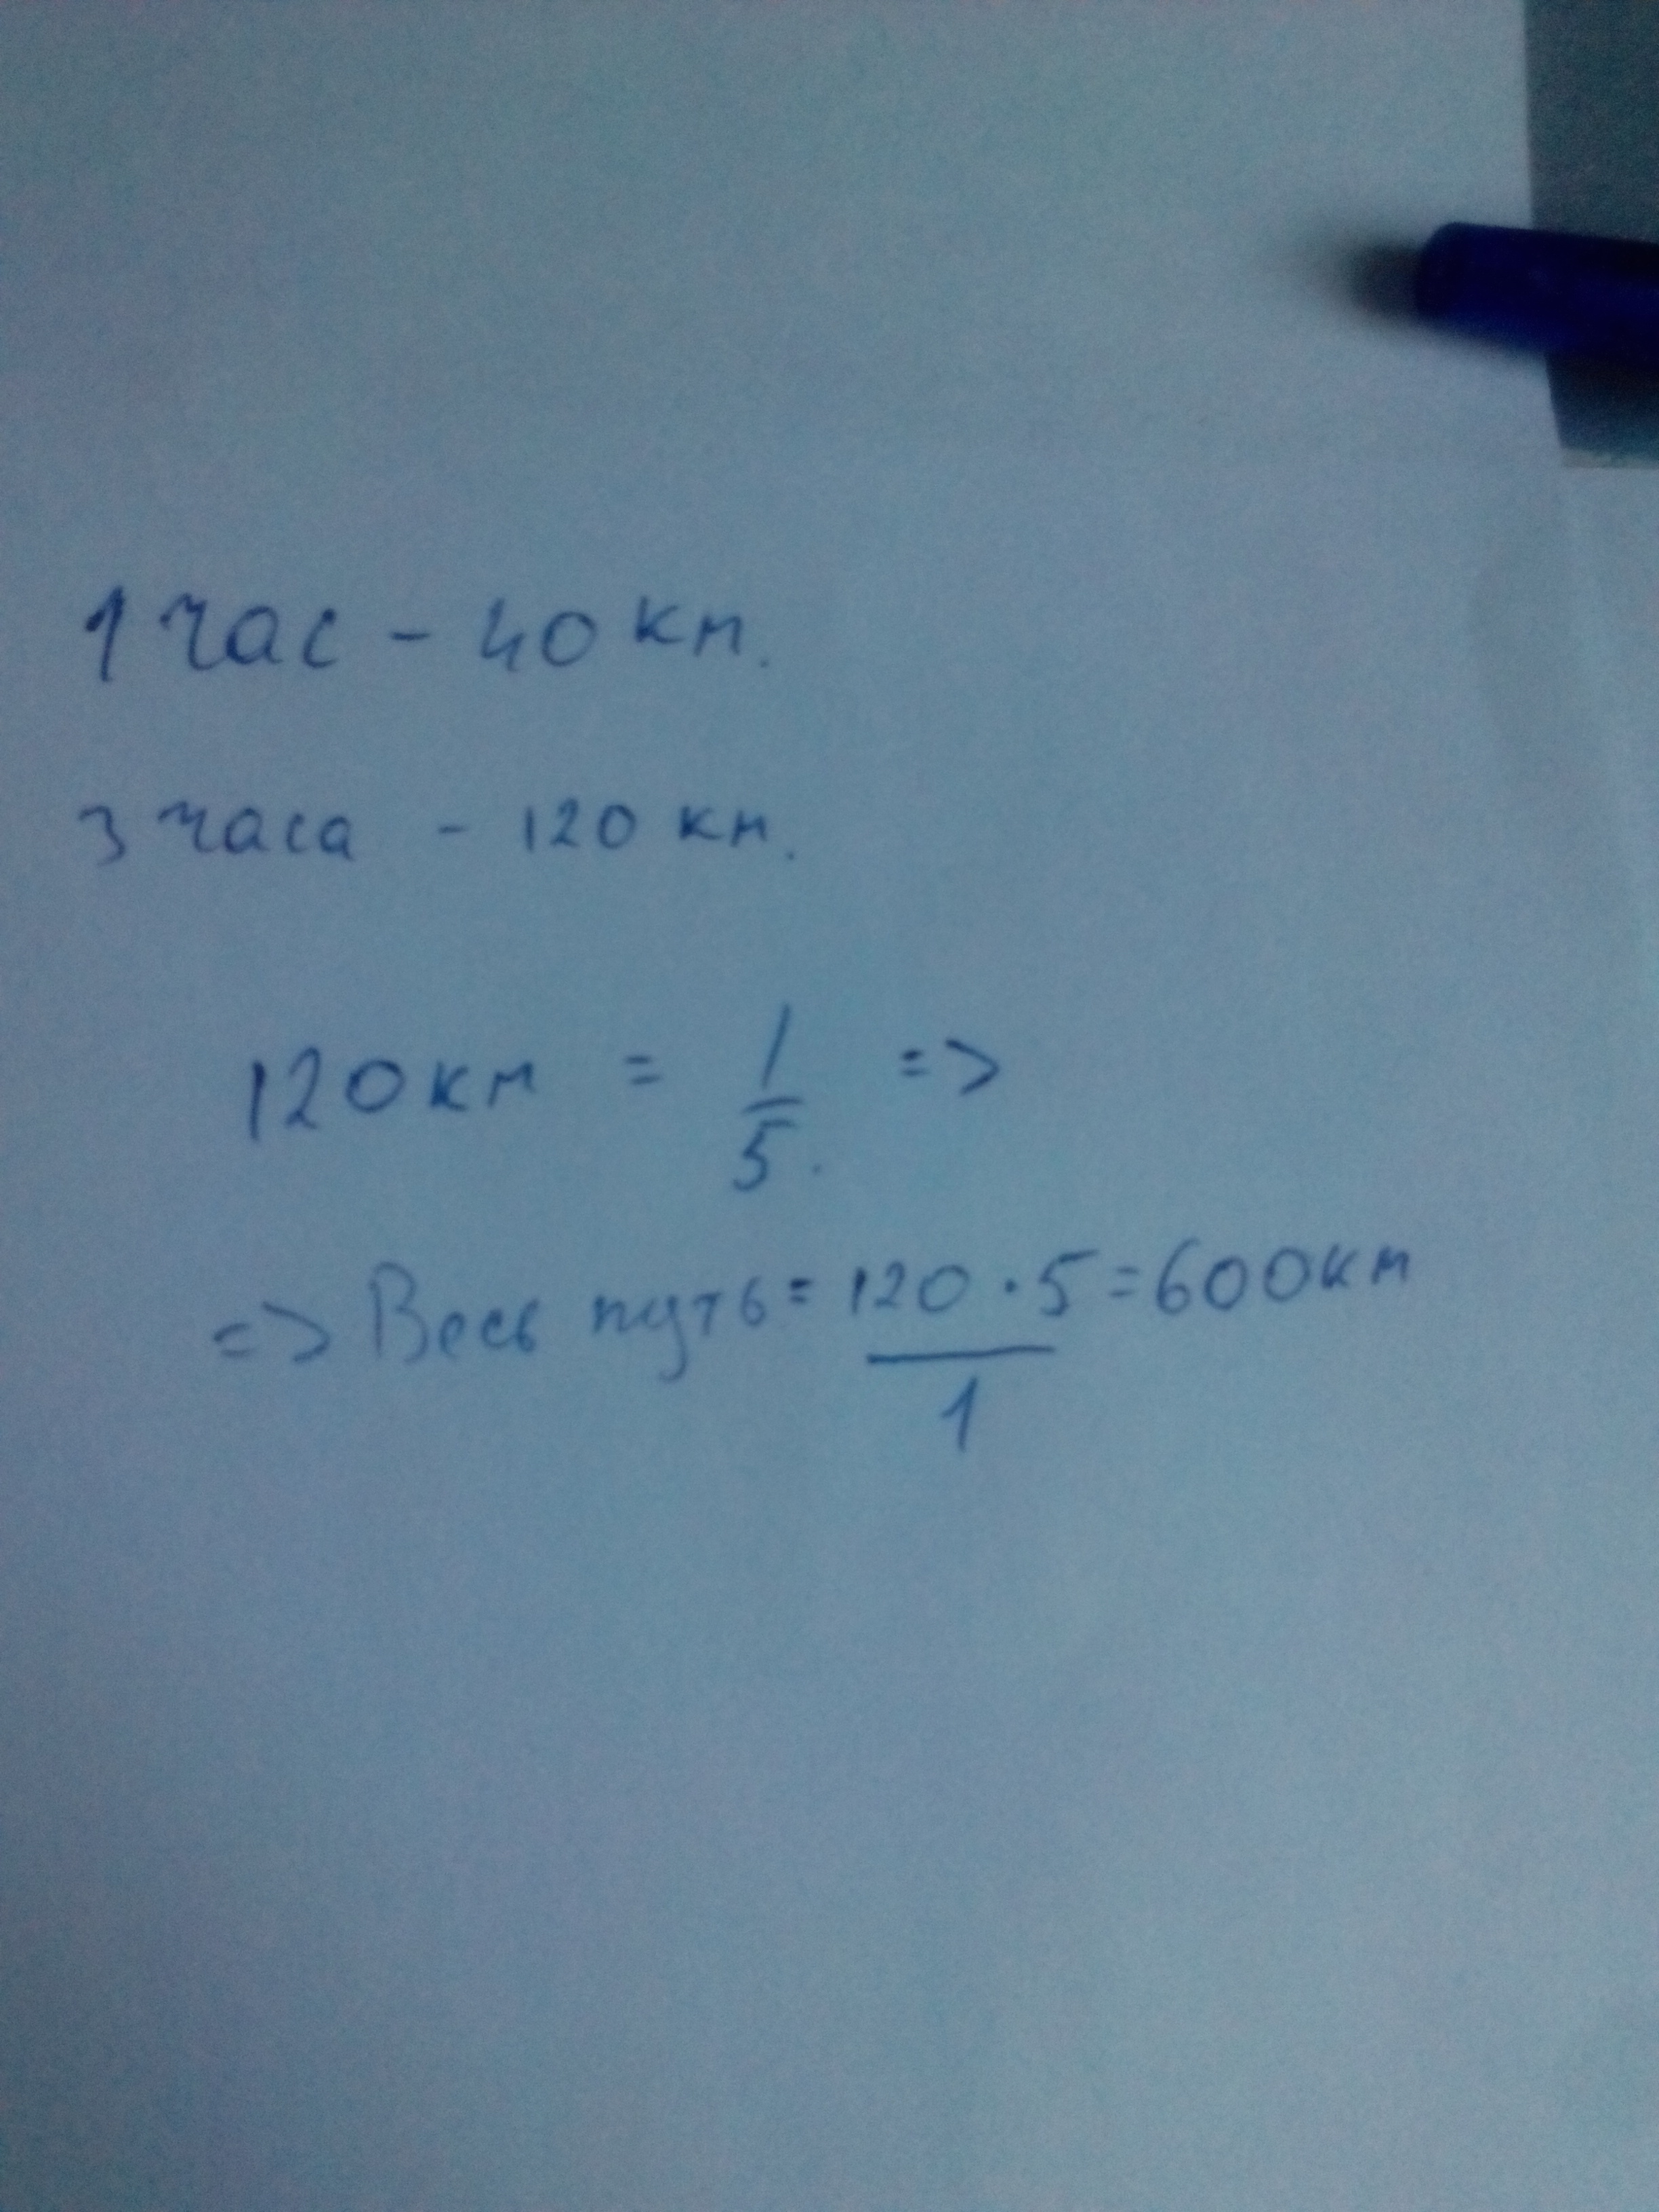 1 час - 40 км.
3 часа - 120 км.
120 км = 1/5. =>
=> Весь путь = 120 · 5 / 1 = 600 км